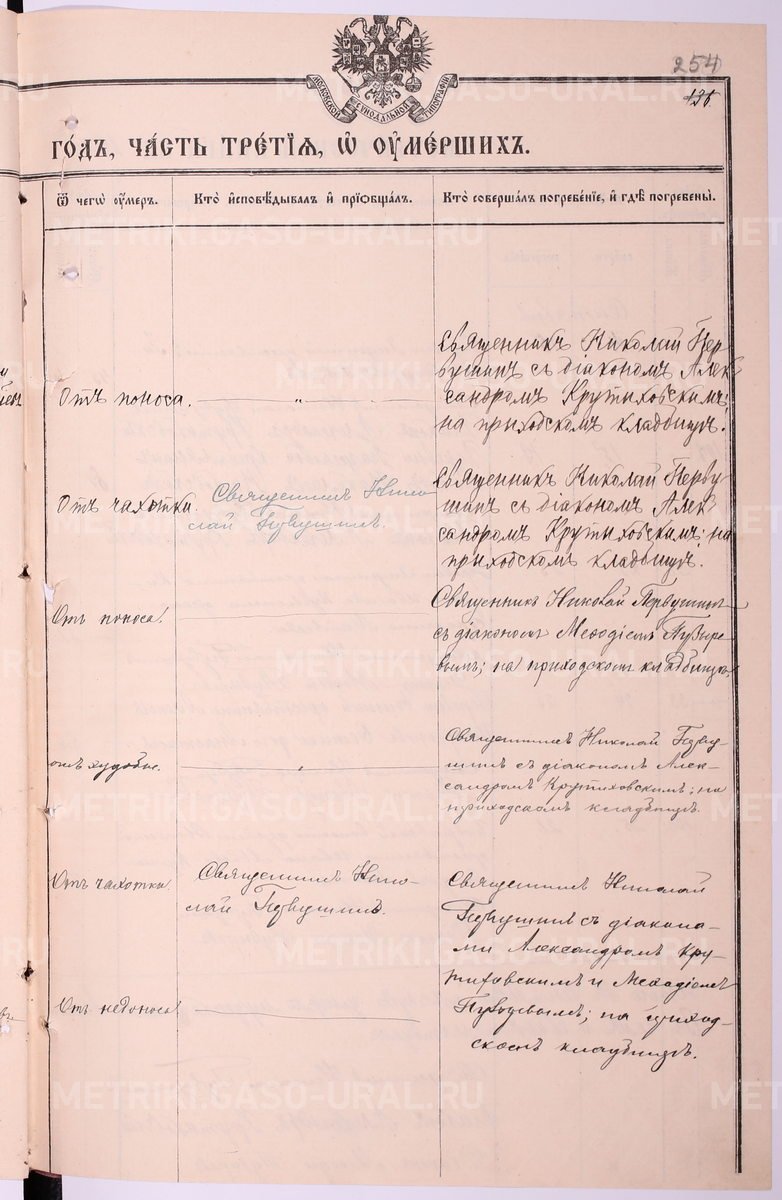 254
136.
МОСКОВСКОЙ СѴНОДАЛЬНОЙ ТИПОГРАФІИ
го́дъ, ча́сть тре́тїѧ, ѡ҆ ᲂу҆ме́ршихъ.
Ѿ чегѡ̀ ᲂу҆́меръ.
Кто̀ и҆сповѣ́дывалъ и҆ прїѡбща́лъ.
Кто̀ соверша́лъ погребе́нїе, и҆ гдѣ̀ погребены̀.
Отъ поноса.
"
Священникъ Николай Пер-
вушинъ съ діакономъ Алек
сандромъ Крутиховскимъ;
на приходскомъ кладбищѣ.
Отъ чахотки.
Священникъ Нико
лай Первушинъ.
Священникъ Николай Перву
шинъ съ діакономъ Алек
сандромъ Крутиховскимъ; на
приходскомъ кладбищѣ.
Отъ поноса.
Священникъ Николай Первушинъ
съ діакономъ Меѳодіемъ Пузыре
вымъ; на приходскомъ кладбищѣ.
отъ худобы.
"
Священникъ Николай Перву-
шинъ съ діакономъ Алек-
сандромъ Крутиховскимъ; на
приходскомъ кладбищѣ.
Отъ чахотки
Священникъ Нико-
лай Первушинъ.
Священникъ Николай
Первушинъ съ діакона-
ми Александромъ Кру-
тиховскимъ и Меѳодіемъ
Пузыревымъ; на приход-
скомъ кладбищѣ.
Отъ недоноса.
METRIKI.GASO-URAL.RU